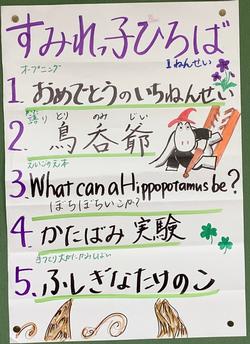 すみれっ子ひろば
1ねんせい
オープニング
1. おめでとうのいちねんせい
語り かた とり のみ じい
2. 鳥呑爺
えいごかえ本
3. What can a Hippopotamus be?
ぼちぼちいこか?
4. かたばみ 実験
5. ふしぎなたけのこ